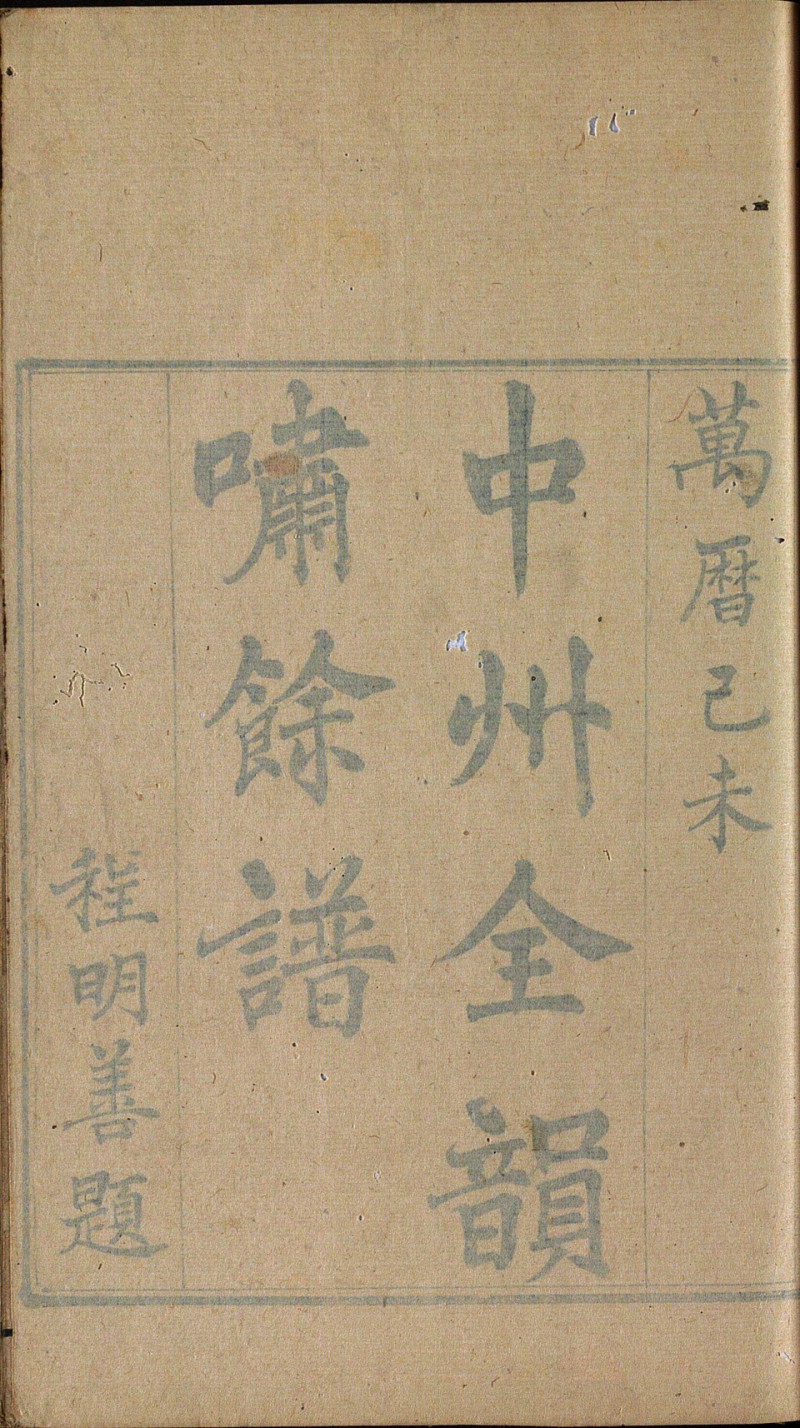 萬曆己未
中州全韻
嘯餘譜
程明善題